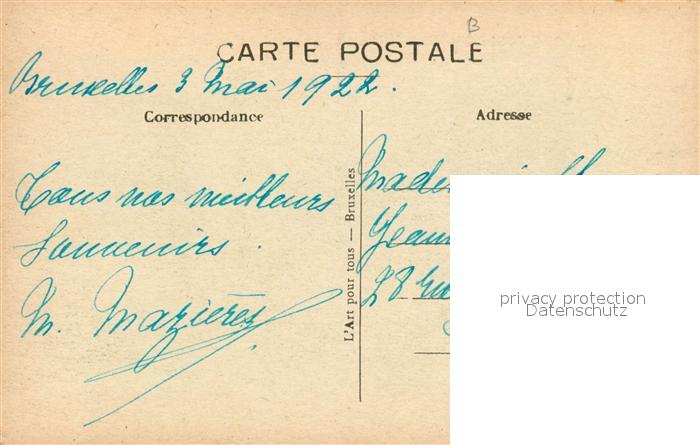 B
CARTE POSTALE
Bruxelles 3 Mai 1922.
Correspondance
Adresse
Tous nos meilleurs
Souvenirs.
M. Mazières
L'Art pour tous — Bruxelles
28 rue
privacy protection
Datenschutz